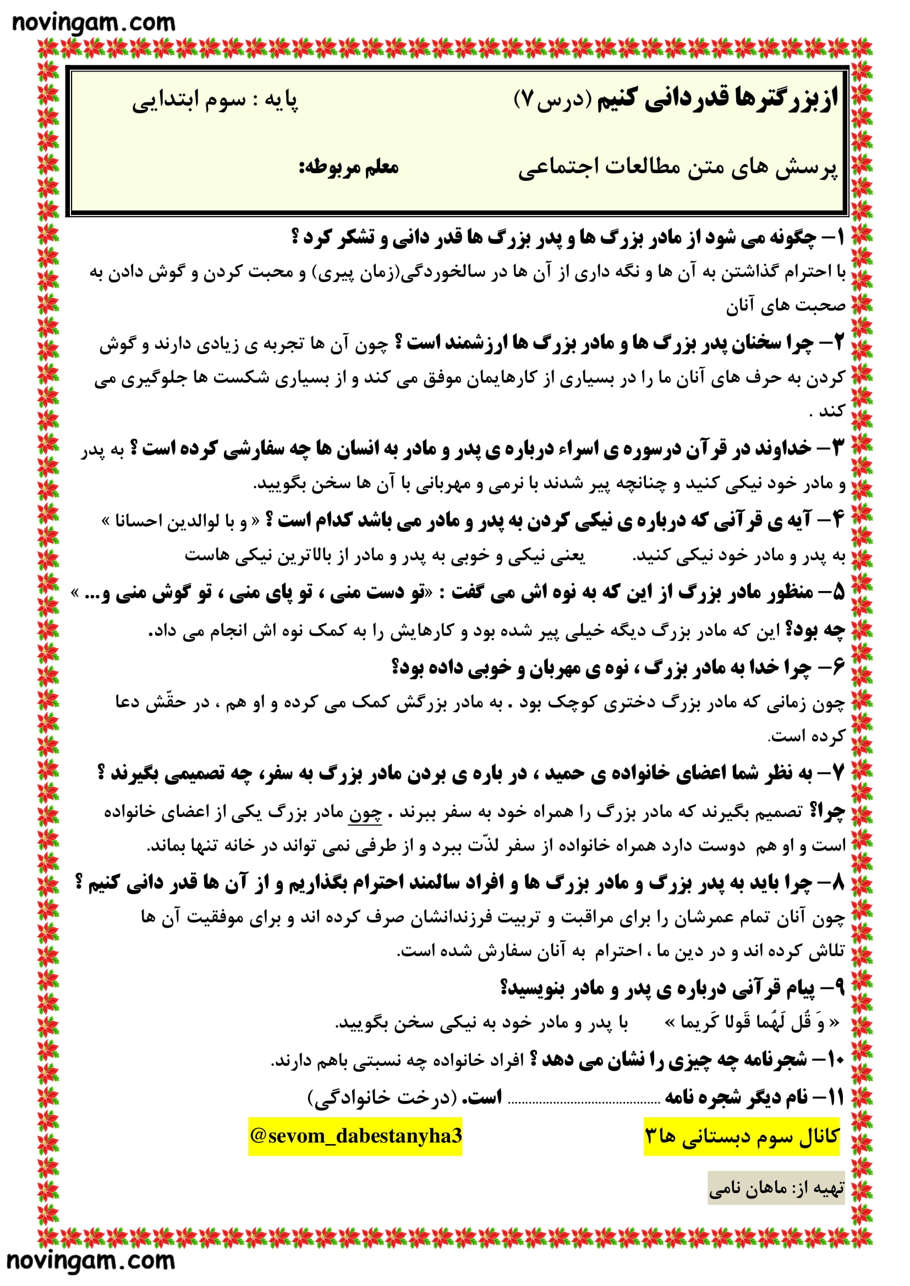 novingam.com
ازبزرگترها قدردانی کنیم (درس۷) پایه : سوم ابتدایی
پرسش های متن مطالعات اجتماعی معلم مربوطه:
۱- چگونه می شود از مادر بزرگ ها و پدر بزرگ ها قدر دانی و تشکر کرد ؟
با احترام گذاشتن به آن ها و نگه داری از آن ها در سالخوردگی(زمان پیری) و محبت کردن و گوش دادن به
صحبت های آنان
۲- چرا سخنان پدر بزرگ ها و مادر بزرگ ها ارزشمند است ؟ چون آن ها تجربه ی زیادی دارند و گوش
کردن به حرف های آنان ما را در بسیاری از کارهایمان موفق می کند و از بسیاری شکست ها جلوگیری می
کند .
۳- خداوند در قرآن درسوره ی اسراء درباره ی پدر و مادر به انسان ها چه سفارشی کرده است ؟ به پدر
و مادر خود نیکی کنید و چنانچه پیر شدند با نرمی و مهربانی با آن ها سخن بگویید.
۴- آیه ی قرآنی که درباره ی نیکی کردن به پدر و مادر می باشد کدام است ؟ « و با لوالدین احسانا »
به پدر و مادر خود نیکی کنید. یعنی نیکی و خوبی به پدر و مادر از بالاترین نیکی هاست
۵- منظور مادر بزرگ از این که به نوه اش می گفت : «تو دست منی ، تو پای منی ، تو گوش منی و... »
چه بود؟ این که مادر بزرگ دیگه خیلی پیر شده بود و کارهایش را به کمک نوه اش انجام می داد.
۶- چرا خدا به مادر بزرگ ، نوه ی مهربان و خوبی داده بود؟
چون زمانی که مادر بزرگ دختری کوچک بود . به مادر بزرگش کمک می کرده و او هم ، در حقّش دعا
کرده است.
۷- به نظر شما اعضای خانواده ی حمید ، در باره ی بردن مادر بزرگ به سفر، چه تصمیمی بگیرند ؟
چرا؟ تصمیم بگیرند که مادر بزرگ را همراه خود به سفر ببرند . چون مادر بزرگ یکی از اعضای خانواده
است و او هم دوست دارد همراه خانواده از سفر لذّت ببرد و از طرفی نمی تواند در خانه تنها بماند.
۸- چرا باید به پدر بزرگ و مادر بزرگ ها و افراد سالمند احترام بگذاریم و از آن ها قدر دانی کنیم ؟
چون آنان تمام عمرشان را برای مراقبت و تربیت فرزندانشان صرف کرده اند و برای موفقیت آن ها
تلاش کرده اند و در دین ما ، احترام به آنان سفارش شده است.
۹- پیام قرآنی درباره ی پدر و مادر بنویسید؟
« وَ قُل لَهُما قَولا کَریما » با پدر و مادر خود به نیکی سخن بگویید.
۱۰- شجرنامه چه چیزی را نشان می دهد ؟ افراد خانواده چه نسبتی باهم دارند.
۱۱- نام دیگر شجره نامه ............................................ است. (درخت خانوادگی)
کانال سوم دبستانی ها۳ @sevom_dabestanyha3
تهیه از: ماهان نامی
novingam.com